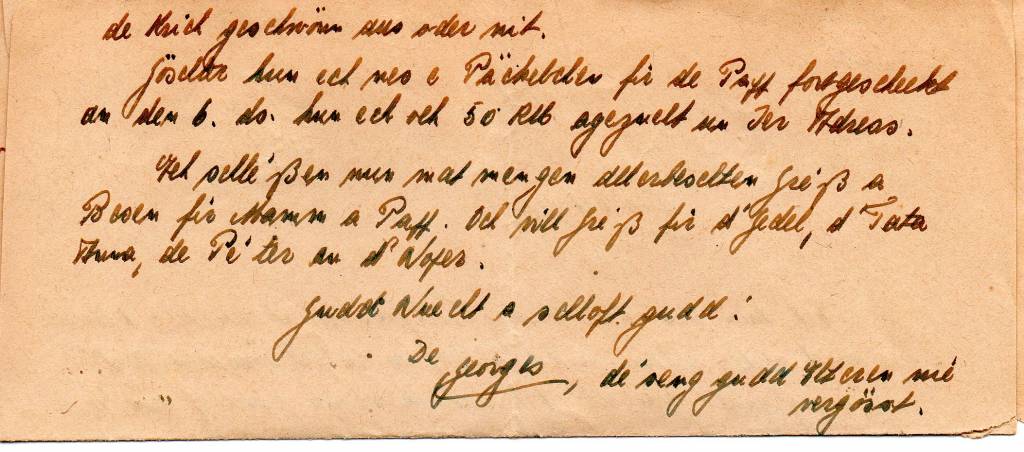 de Krich geschwönn aus oder nit.
Göschter hun ech nes e Päckelchen fir de Paff fortgescheckt
an den 6. ds. hun ech och 50 RM agezuelt un Ier Adress.
Ech schléißen nun mat mengen allerbeschten Gréiß a
Besen fir Mamm a Paff. Och vill Gréiß fir d'Jedel, d'Tata
Anna, de Pé'ter an d'Noper.
Gudd Nuecht a schloft gudd!
De Georges, dé seng gudd Elteren nié
vergösst.